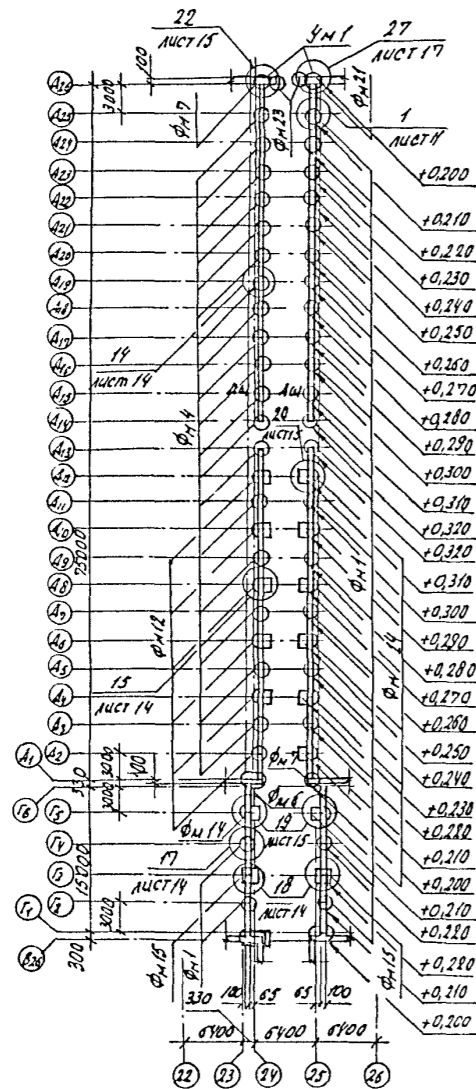 22
ЛИСТ 15
Ум1
27
ЛИСТ 17
100
3000
Фм7
Фм23
Фм21
1
+0,200
+0,210
+0,220
+0,230
+0,240
+0,250
+0,260
+0,270
+0,280
+0,290
+0,300
+0,310
+0,320
+0,320
+0,310
+0,300
+0,290
+0,280
+0,270
+0,260
+0,250
+0,240
+0,230
+0,220
+0,210
+0,200
+0,210
+0,220
+0,220
+0,210
+0,200
А26
А25
А24
А23
А22
А21
А20
А19
А18
А17
А16
А15
А14
А13
А12
А11
А10
А9
А8
А7
А6
А5
А4
А3
А1
А2
Г6
Г5
Г4
Г3
Г1
Г2
В26
14
ЛИСТ 14
Фм4
20
ЛИСТ 13
75000
Фм12
Фм1
15
ЛИСТ 14
3000
330
3000
Фм14
Фм6
19
ЛИСТ 15
17
ЛИСТ 14
18
ЛИСТ 14
15000
3000
300
Фм15
Фм1
Фм15
330
65
65
100
6400
6400
6400
22
23
24
25
26